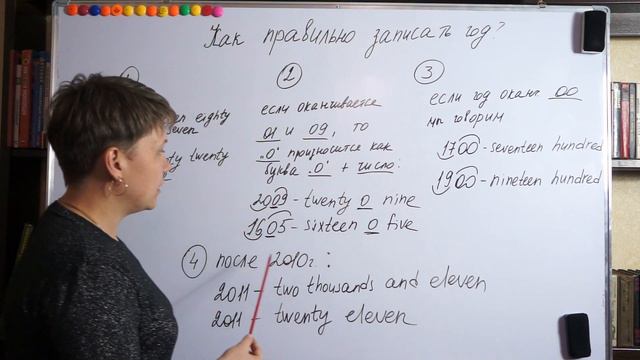 Как правильно записать год?
1
eighty
seven
twenty
2
если оканчивается
01 и 09, то
„0" произносится как
буква „0" + число:
2009 - twenty 0 nine
1605 - sixteen 0 five
3
если год оканч 00
мы говорим
1700 - seventeen hundred
1900 - nineteen hundred
4 после 2010г:
2011 - two thousands and eleven
2011 - twenty eleven